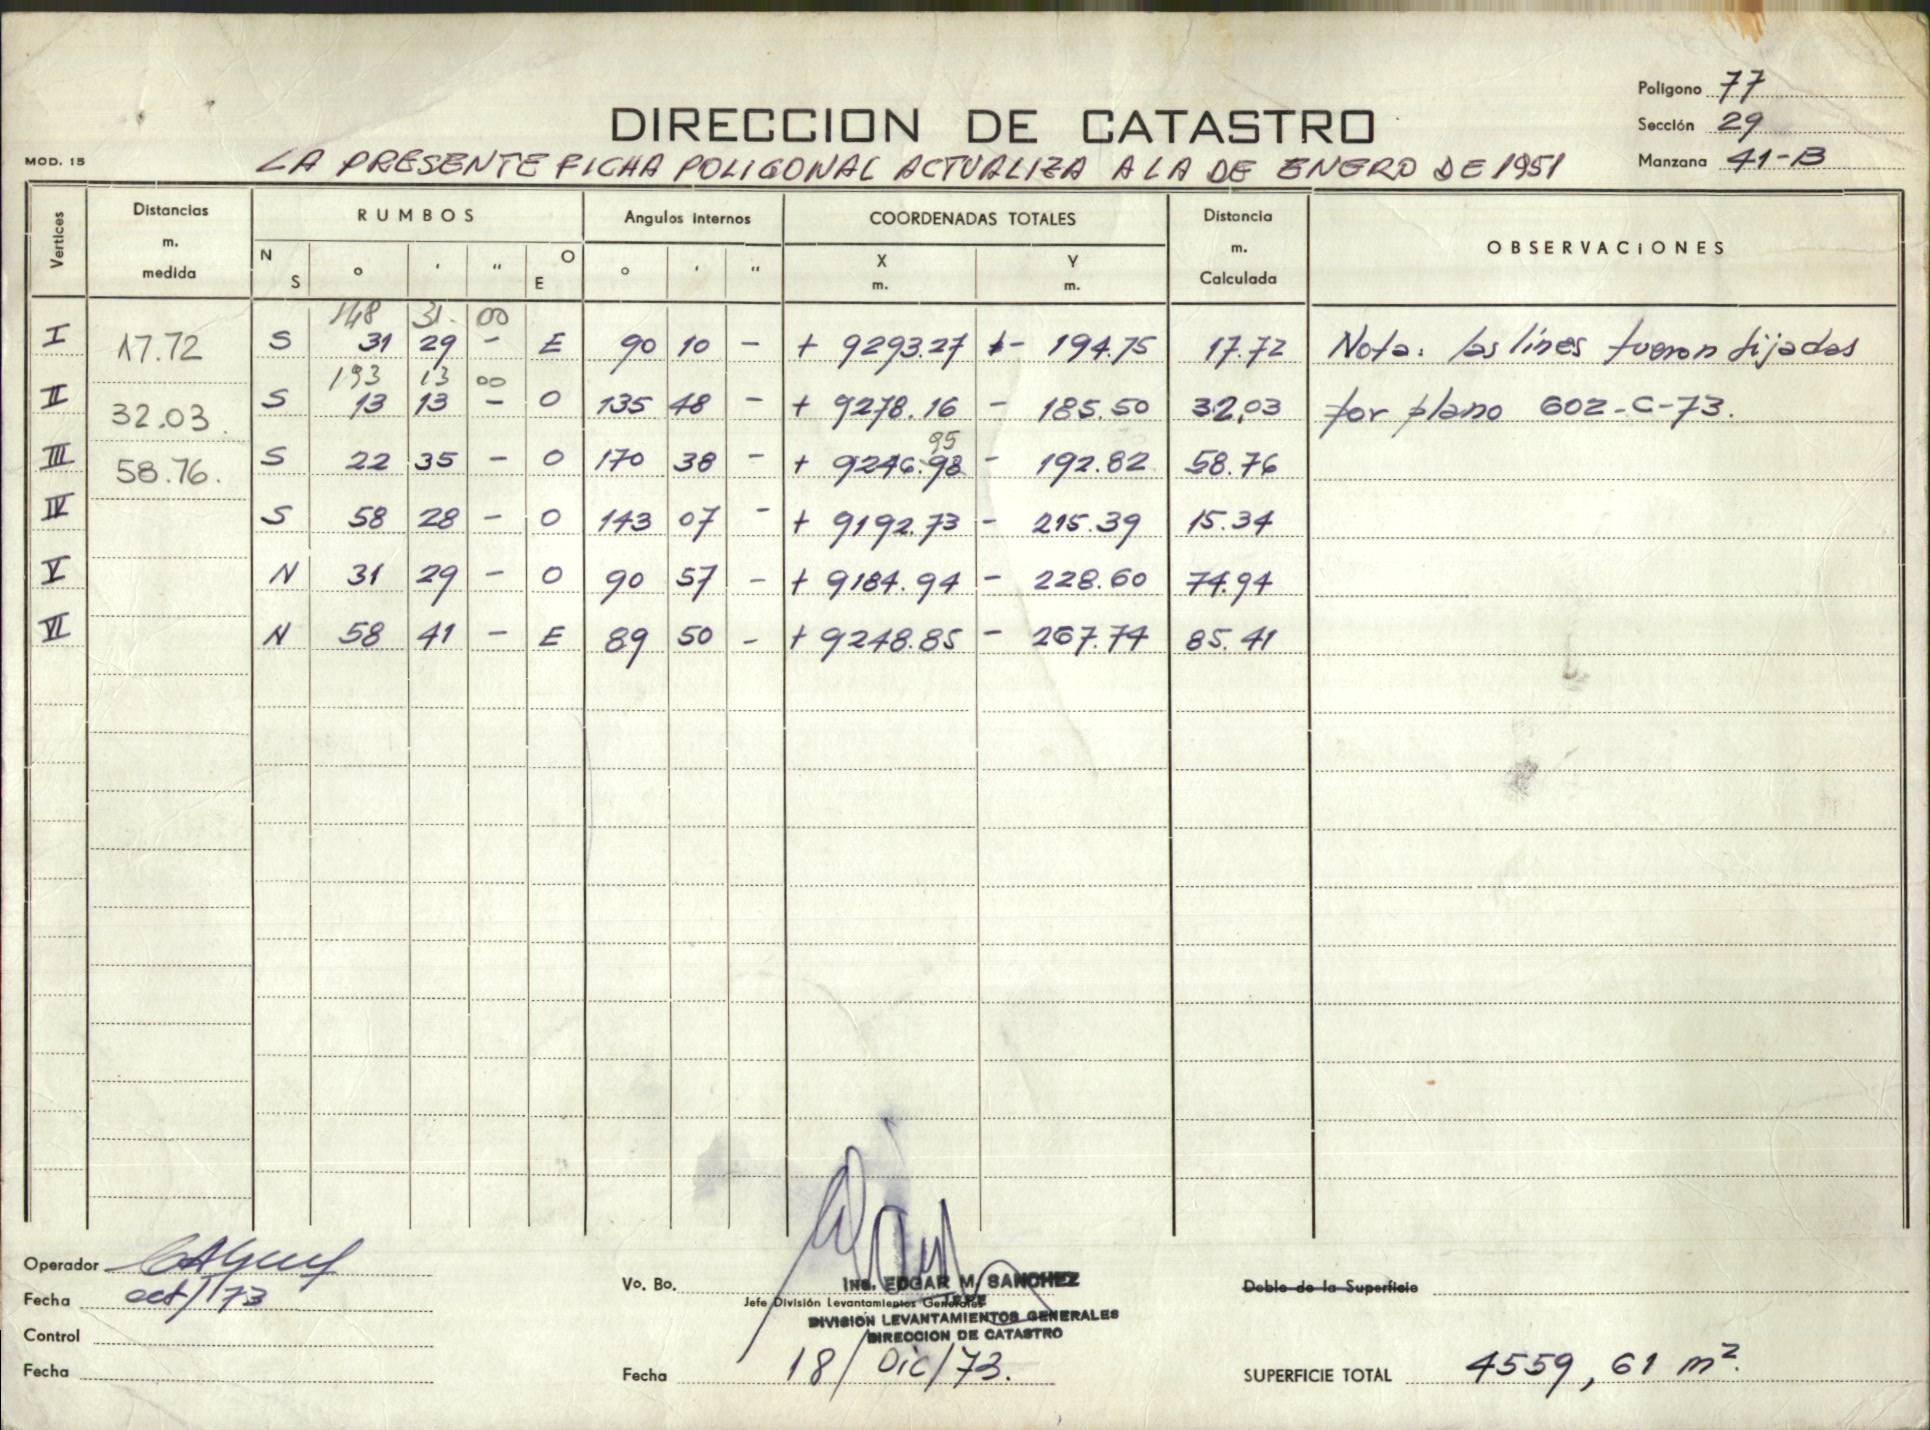 Polígono 77
DIRECCION DE CATASTRO
Sección 29
MOD. 15
LA PRESENTE FICHA POLIGONAL ACTUALIZA A LA DE ENERO DE 1951
Manzana 41-B
Vertices Distancias m. medida RUMBOS Angulos internos COORDENADAS TOTALES Distancia m. Calculada OBSERVACIONES
N S ° ' " O E ° ' " X m. Y m.
148 31 00
I 17.72 S 31 29 - E 90 10 - + 9293.27 - 194.75 17.72 Nota: las lines fueron fijadas
193 13 00
II 32.03 S 13 13 - O 135 48 - + 9278.16 - 185.50 32.03 por plano 602-C-73.
95
III 58.76. S 22 35 - O 170 38 - + 9246.98 - 192.82 58.76
IV S 58 28 - O 143 07 - + 9192.73 - 215.39 15.34
V N 31 29 - O 90 57 - + 9184.94 - 228.60 74.94
VI N 58 41 - E 89 50 - + 9248.85 - 267.74 85.41
Operador
Fecha oct/73
Control
Fecha
Vo. Bo. ING. EDGAR M. SANCHEZ
Jefe División Levantamientos Generales
JEFE
DIVISIÓN LEVANTAMIENTOS GENERALES
DIRECCION DE CATASTRO
Fecha 18/Dic/73.
Doble de la Superficie
SUPERFICIE TOTAL 4559,61 m².